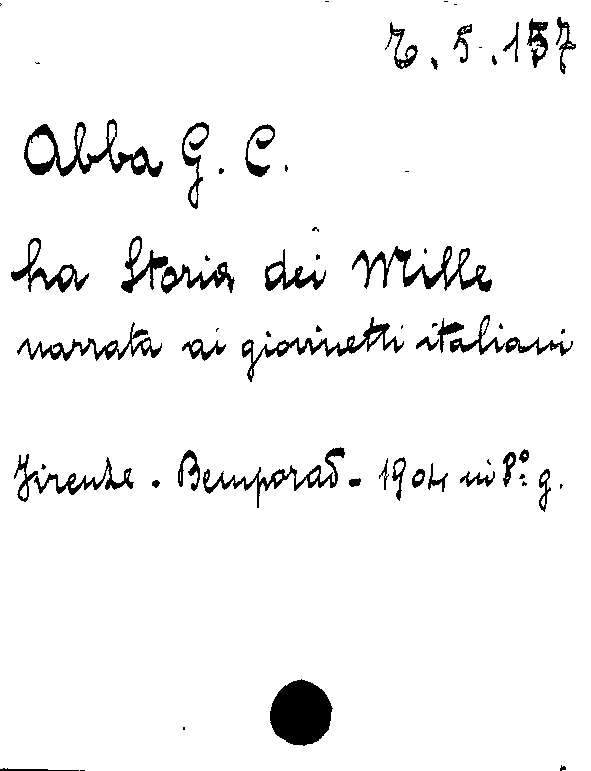 5.157
Abba G. C.
La Storia dei Mille
narrata ai giovinetti italiani
Firenze - Bemporad - 1904 in 8.° g.